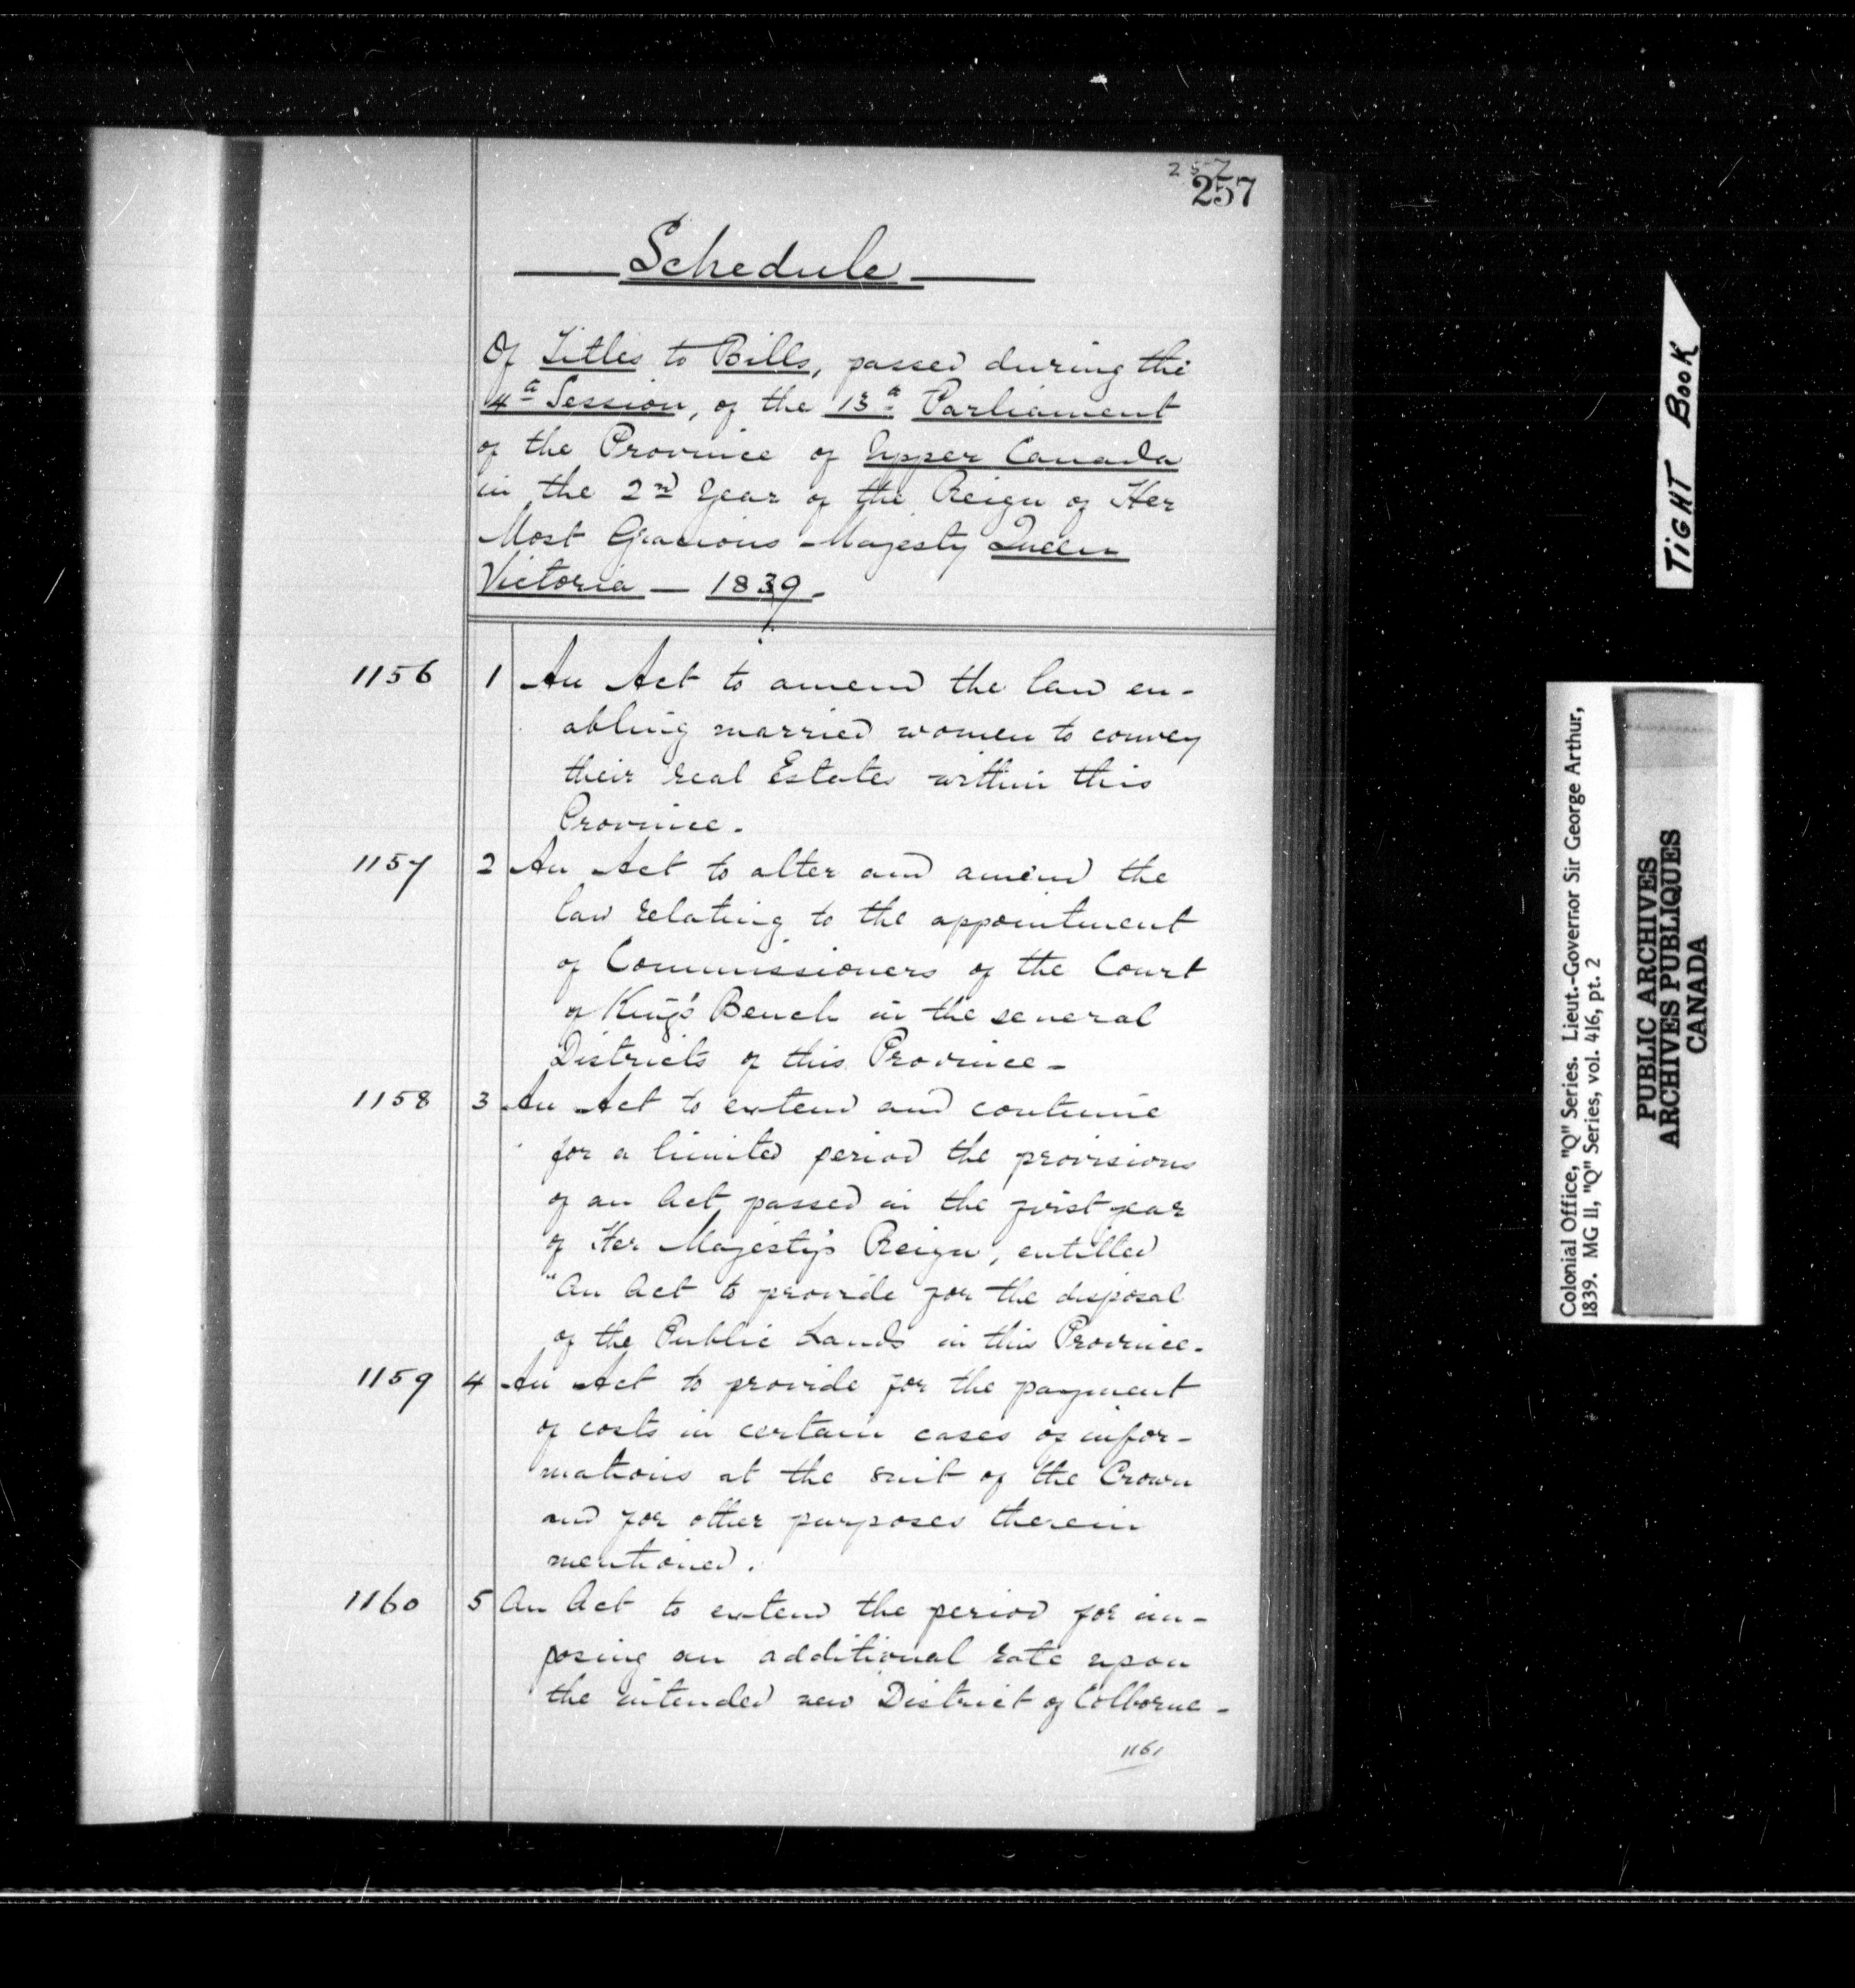 257
257
Schedule
Of Titles to Bills, passed during the
4th Session, of the 13th Parliament
of the Province of Upper Canada
in the 2nd Year of the Reign of Her
Most Gracious Majesty Queen
Victoria — 1839.
1156 1 An Act to amend the law en-
abling married women to convey
their real Estate within this
Province.
1157 2 An Act to alter and amend the
law relating to the appointment
of Commissioners of the Court
of King's Bench in the several
Districts of this Province -
1158 3 An Act to extend and continue
for a limited period the provisions
of an Act passed in the first year
of Her Majesty's Reign, entitled
"An Act to provide for the disposal
of the Public Lands in this Province.
1159 4 An Act to provide for the payment
of costs in certain cases of infor-
mations at the suit of the Crown
and for other purposes therein
mentioned.
1160 5 An Act to extend the period for im-
posing an additional rate upon
the intended new District of Colborne -
1161
TIGHT BOOK
Colonial Office, "Q" Series. Lieut.-Governor Sir George Arthur,
1839. MG 11, "Q" Series, vol. 416, pt. 2
PUBLIC ARCHIVES
ARCHIVES PUBLIQUES
CANADA